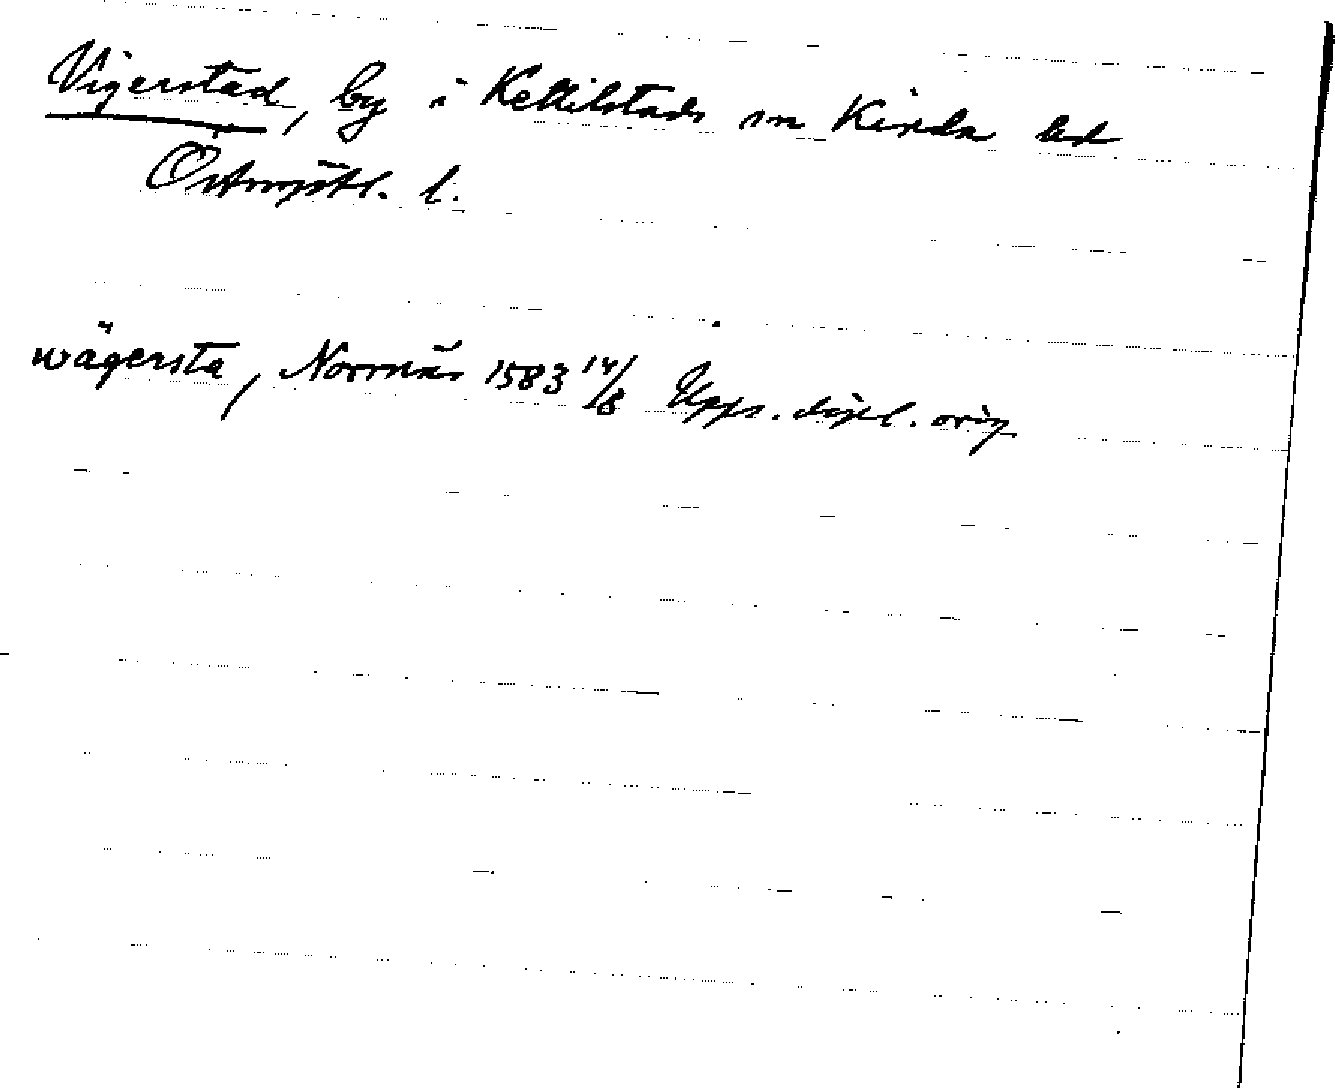 Vigerstad, by i Kettilstads sn Kinda hd
Östergötl. l.
wägersta, Norrnäs 1583 14/8 Upps. dipl. orig.